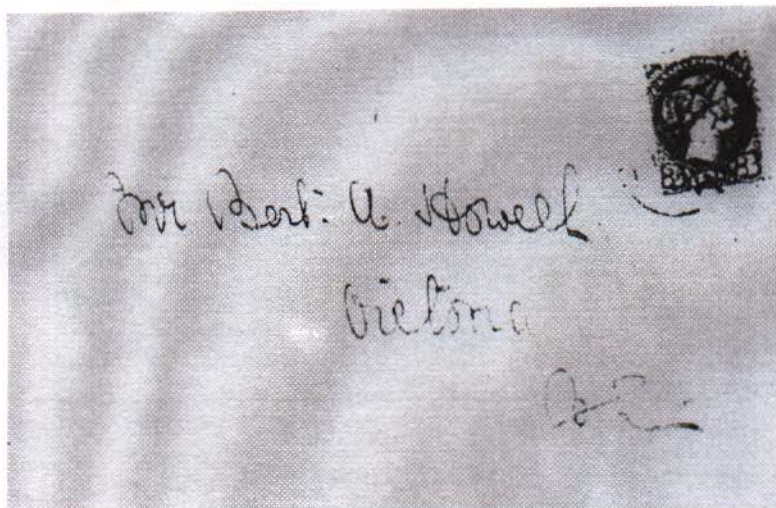 Mr Bert. A. Howell
Victoria
B.C.